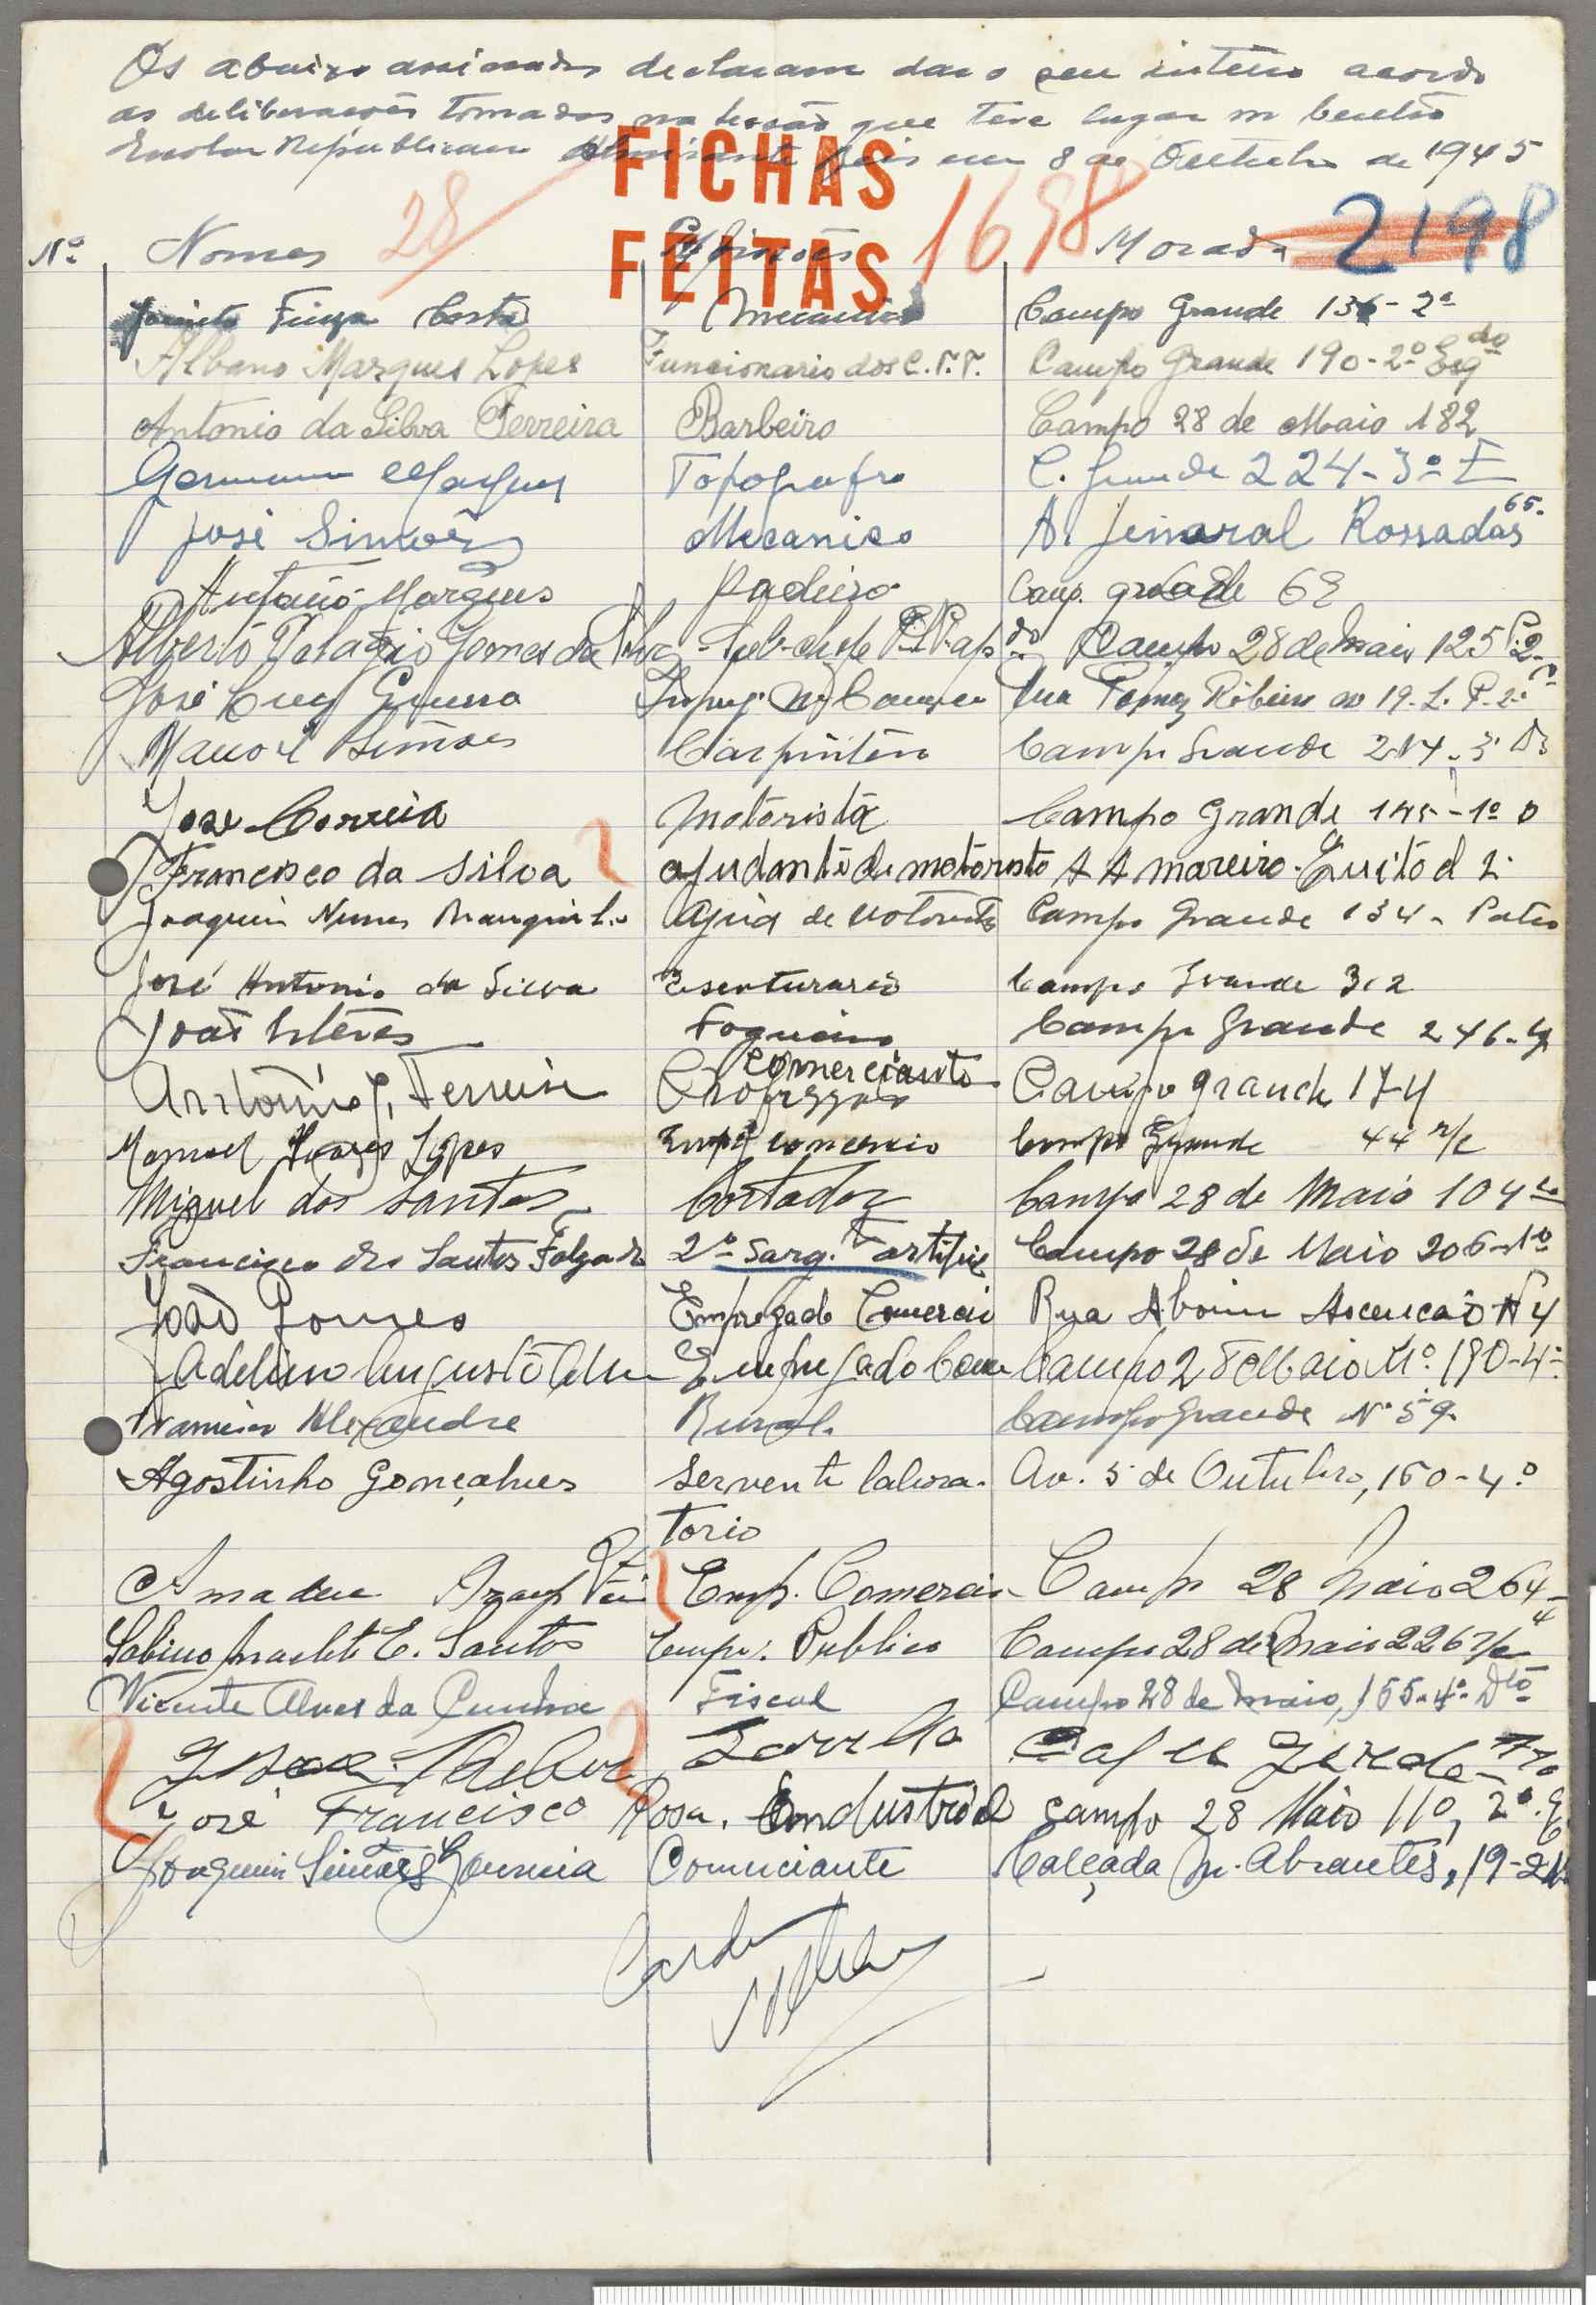 Os abaixo assinados declaram dar o seu inteiro acordo
as deliberações tomadas na sessão que teve lugar no Centro
Escolar Republicano Almirante Reis em 8 de Outubro de 1945
FICHAS
28 1698 2198
Nº Nomes Profissões Morada
FEITAS
Costa Mecanico Campo Grande 136-2º
Albano Marques Lopes Funcionario dos C.T.T. Campo Grande 190-2º Esqdo
Antonio da Silva Ferreira Barbeiro Campo 28 de Maio 182
Germano Marques Topografo C. Grande 224-3º E
José Simões Mecanico A. Jeneral Rossadas 65.
Antonio Marques Padeiro Camp. grande 68
Alberto Gomes da Silva Sub-chefe P.S.P. apdo Campo 28 de Maio 125 P. 2
José Cruz Guerra Empreg. no Rua Tomaz Ribeiro no 19.
Manoel Simões Carpinteiro Campo Grande 214-3º D
Jose Correia Motorista Campo Grande 145-1º D
Francisco da Silva ajudante de motoristo
Joaquim Nunes Campo Grande 134- Pateo
José Antonio da Silva Escriturario Campo Grande 312
João Esteves Fogueiro Campo Grande 246-
Comerciante
Antonio J. Ferreira Professor Campo grande 174
Manuel Lopes Empº comercio Campo Grande 44 r/c
Miguel dos Santos Cortador Campo 28 de Maio 104
Francisco dos Santos Folgado 2º Sarg. artifice Campo 28 de Maio 206-1º
João Gomes Empregado Comercio Rua Aboim Ascenção Nº 4
Adelino Augusto Empregado Com Campo 28 Maio Nº 190-4º
Alexandre Rural. Campo Grande Nº 59.
Agostinho Gonçalves Servente labora- Av. 5 de Outubro, 160-4º
torio
Amadeu Emp. Comercio Campo 28 Maio 264-
4
Sabino E. Santos Emp. Publico Campo 28 de Maio 226 r/c
Vicente Alves da Cunha Fiscal Campo 28 de Maio, 155-4º Dto
José Francisco Rosa. Endustrial Campo 28 Maio 110, 2º. E
Joaquim Simões Gouveia Comerciante Calçada M. Abrantes, 19-2